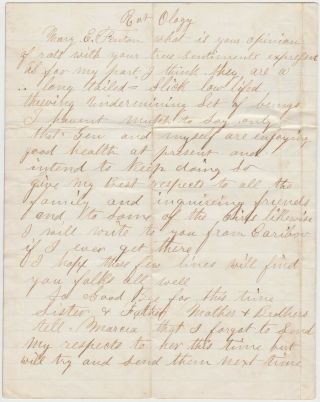 Rat Ology
Mary E. Fenton what is your opinion
of rats with your true sentiments expressed
As for my part I think they are a
long tailed = Slick low lifed
thieving Undermining Set of beings
I havent much to Say only
that Gen and myself are enjoying
good health at present and
intend to keep doing So
give my best respects to all the
family and inquireing friends
and to Some of the Girls likewise
I will write to you from Cariboo
if I ever get there
I hope these few lines will find
you folks all well
So Good Bye for this time
Sister & Father, Mother & Brothers
tell Marcia that I forgot to Send
my respects to her this time but
will try and Send them next time